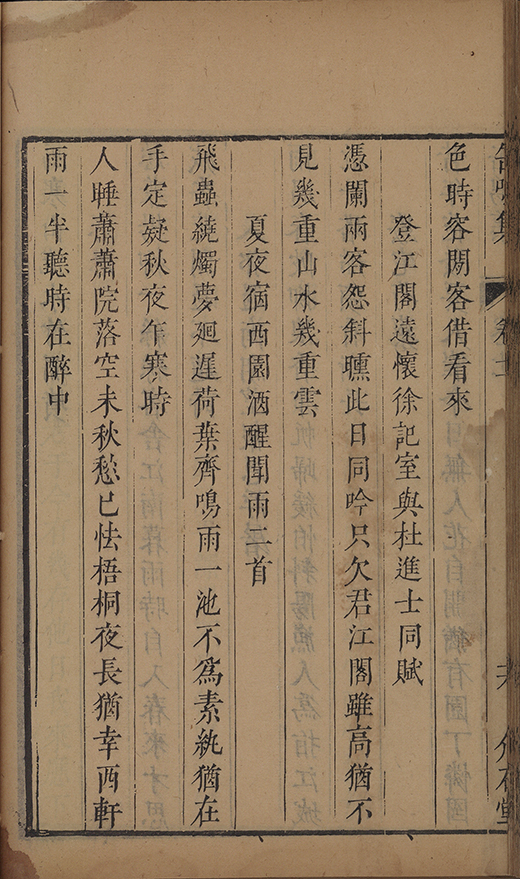 色時客閉客借看來
登江閣遠懷徐記室與杜進士同賦
憑闌兩客怨斜曛此日同吟只欠君江閣雖高猶不
見幾重山水幾重雲
夏夜宿西園酒醒聞雨二首
飛蟲繞燭夢廻遲荷葉齊鳴雨一池不爲素紈猶在
手定疑秋夜乍寒時
人睡蕭蕭院落空未秋愁已怯梧桐夜長猶幸西軒
雨一半聽時在醉中